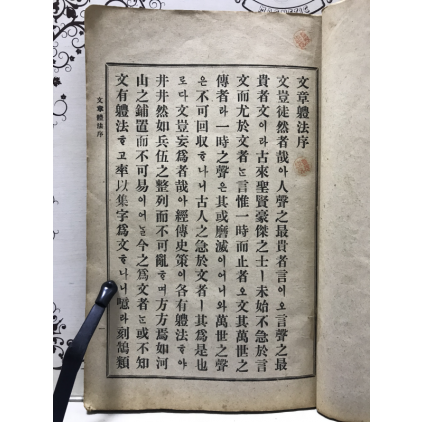 文章軆法序
文豈徒然者哉아人聲之最貴者言이오言聲之最
貴者文이라古來聖賢豪傑之士ㅣ未始不急於言
文而尤於文者는言惟一時而止者오文其萬世之
傳者라一時之聲은其或磨滅이어니와萬世之聲
은不可回収ᄒᆞ나니古人之急於文者ㅣ其爲是也
로다文豈妄爲者哉아經傳史策이各有軆法ᄒᆞ야
井井然如兵伍之整列而不可亂ᄒᆞ며方方焉如河
山之鋪置而不可易이어ᄂᆞᆯ今之爲文者는或不知
文有軆法ᄒᆞ고率以集字爲文ᄒᆞ나니噫라刻鵠類
文章軆法序